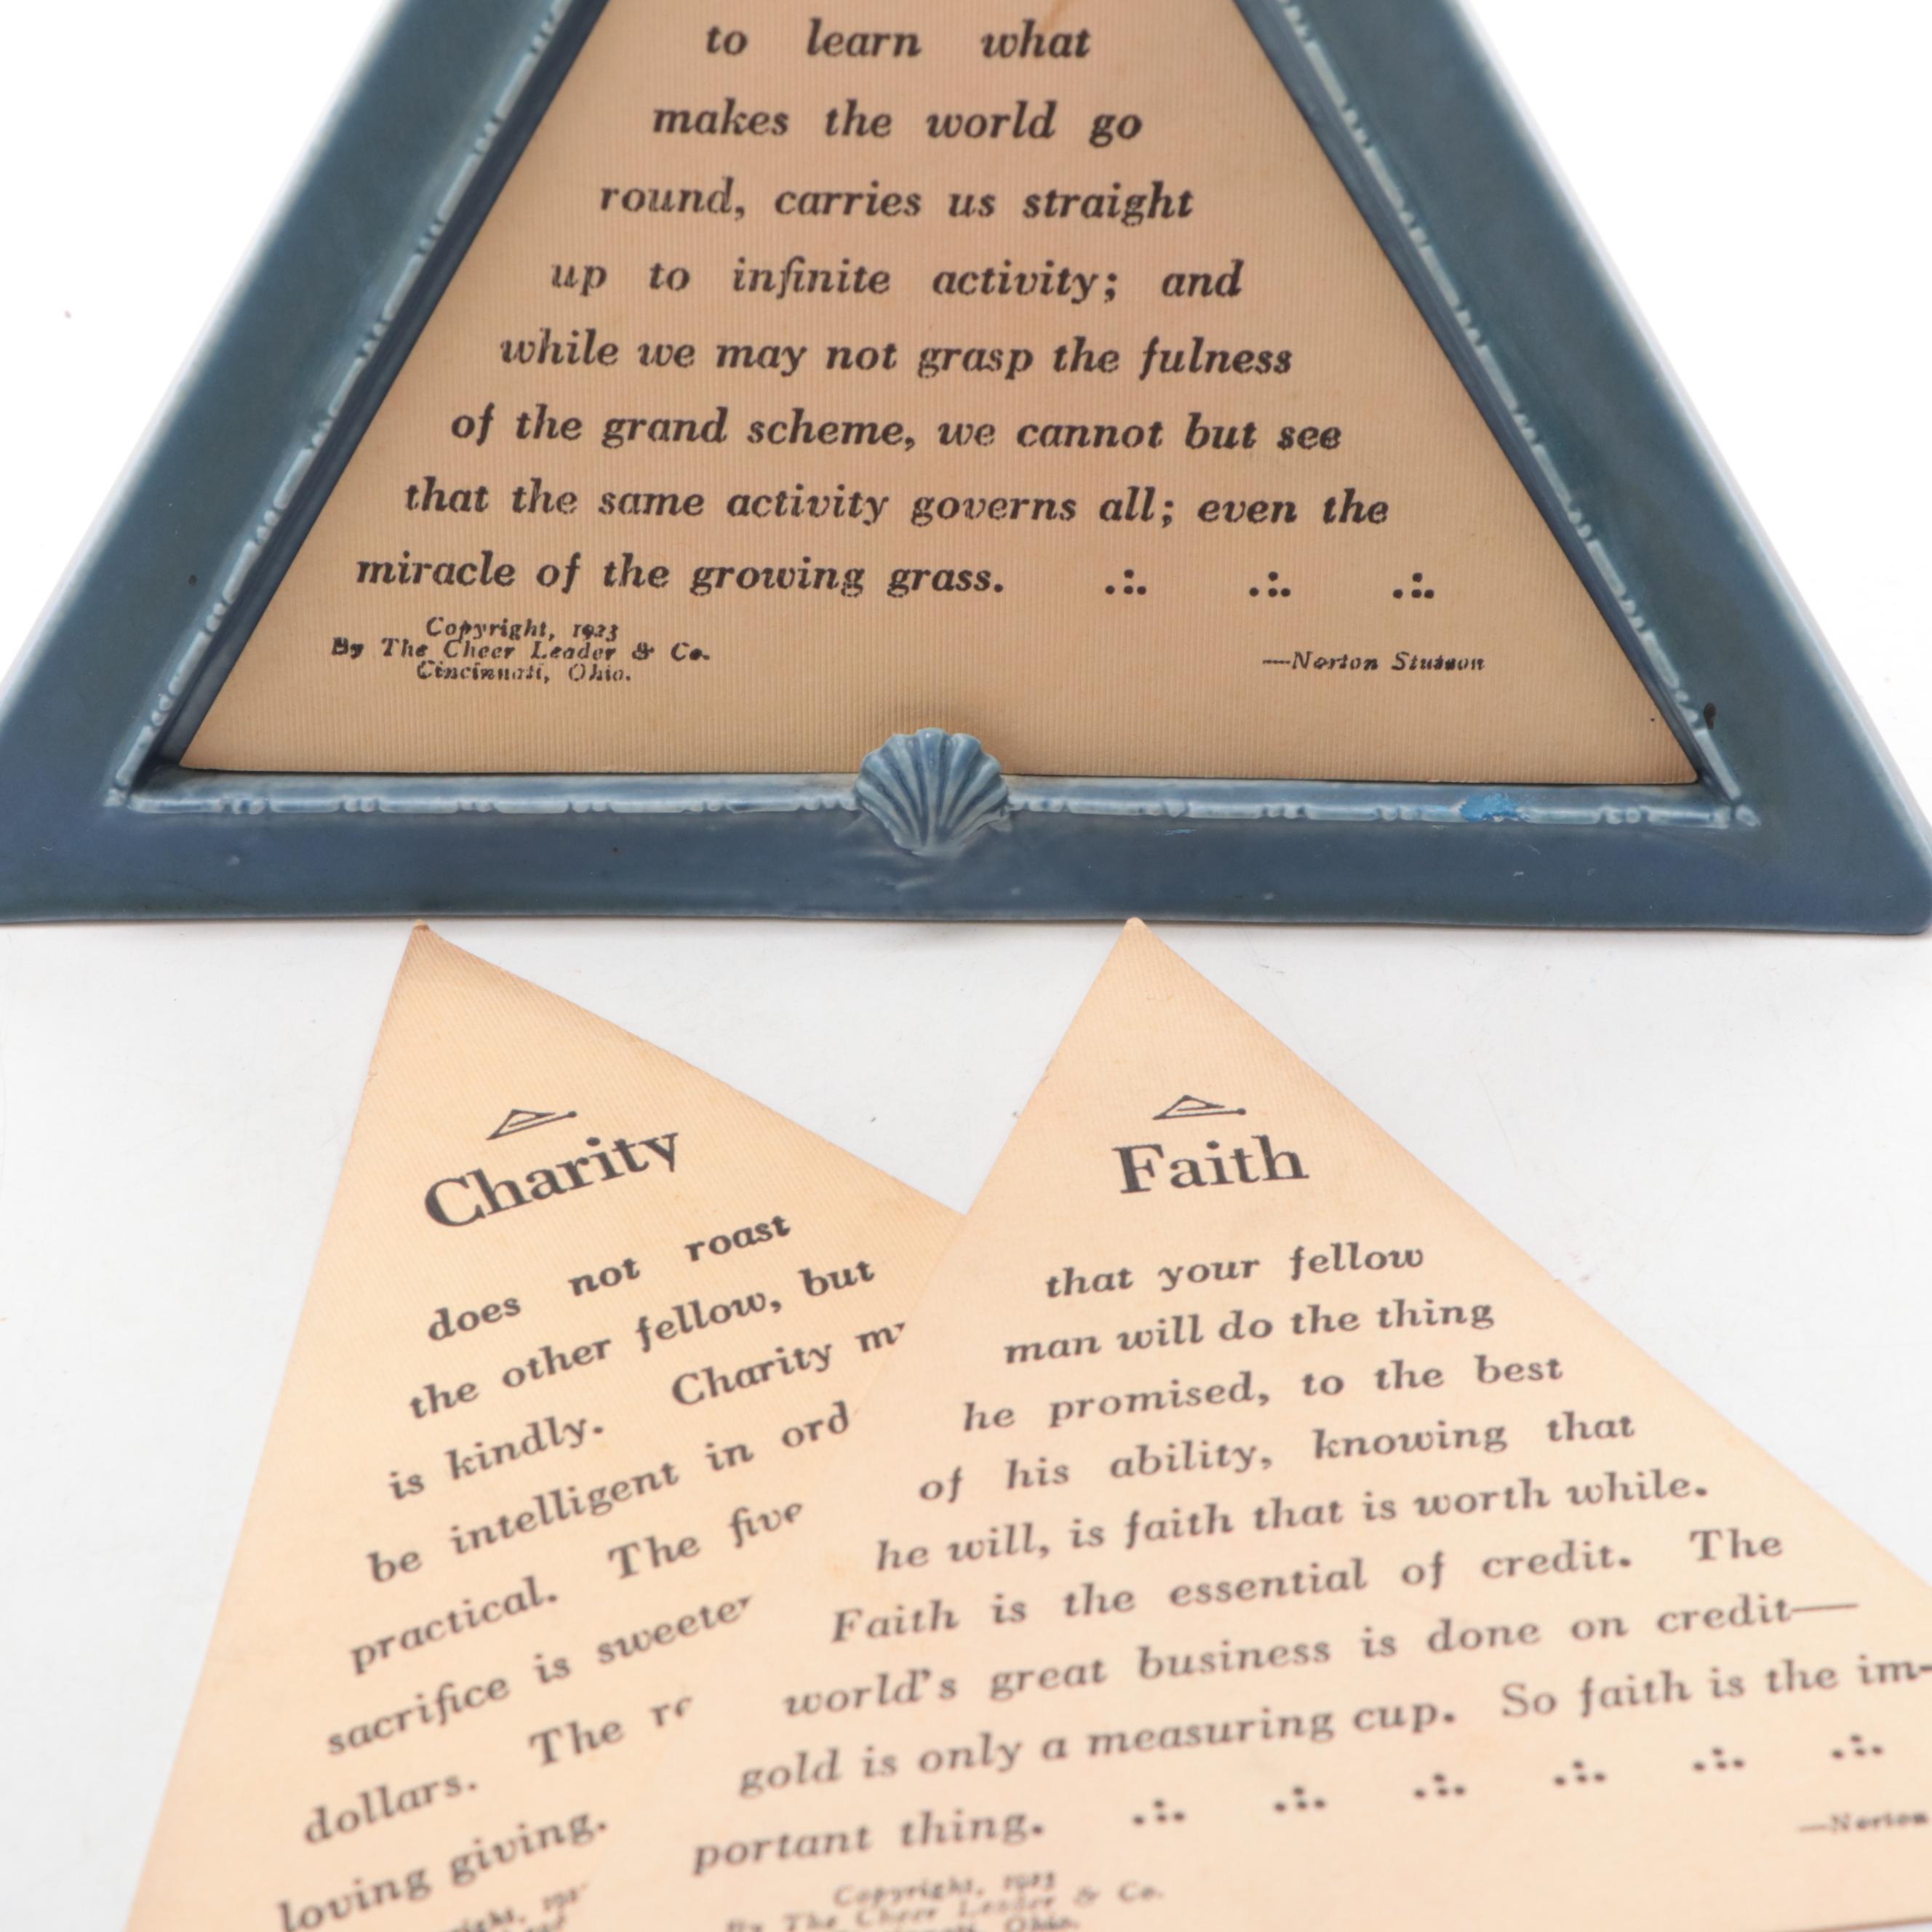 to learn what
makes the world go
round, carries us straight
up to infinite activity; and
while we may not grasp the fulness
of the grand scheme, we cannot but see
that the same activity governs all; even the
miracle of the growing grass.
Copyright, 1923
By The Cheer Leader & Co.
Cincinnati, Ohio.
—Norton Stutson
Charity
does not roast
the other fellow, but
is kindly. Charity
be intelligent in
practical. The five
sacrifice is
dollars. The
loving giving.
Faith
that your fellow
man will do the thing
he promised, to the best
of his ability, knowing that
he will, is faith that is worth while.
Faith is the essential of credit. The
world's great business is done on credit—
gold is only a measuring cup. So faith is the im-
portant thing.
—Norton
Copyright, 1923
By The Cheer Leader & Co.
Ohio.